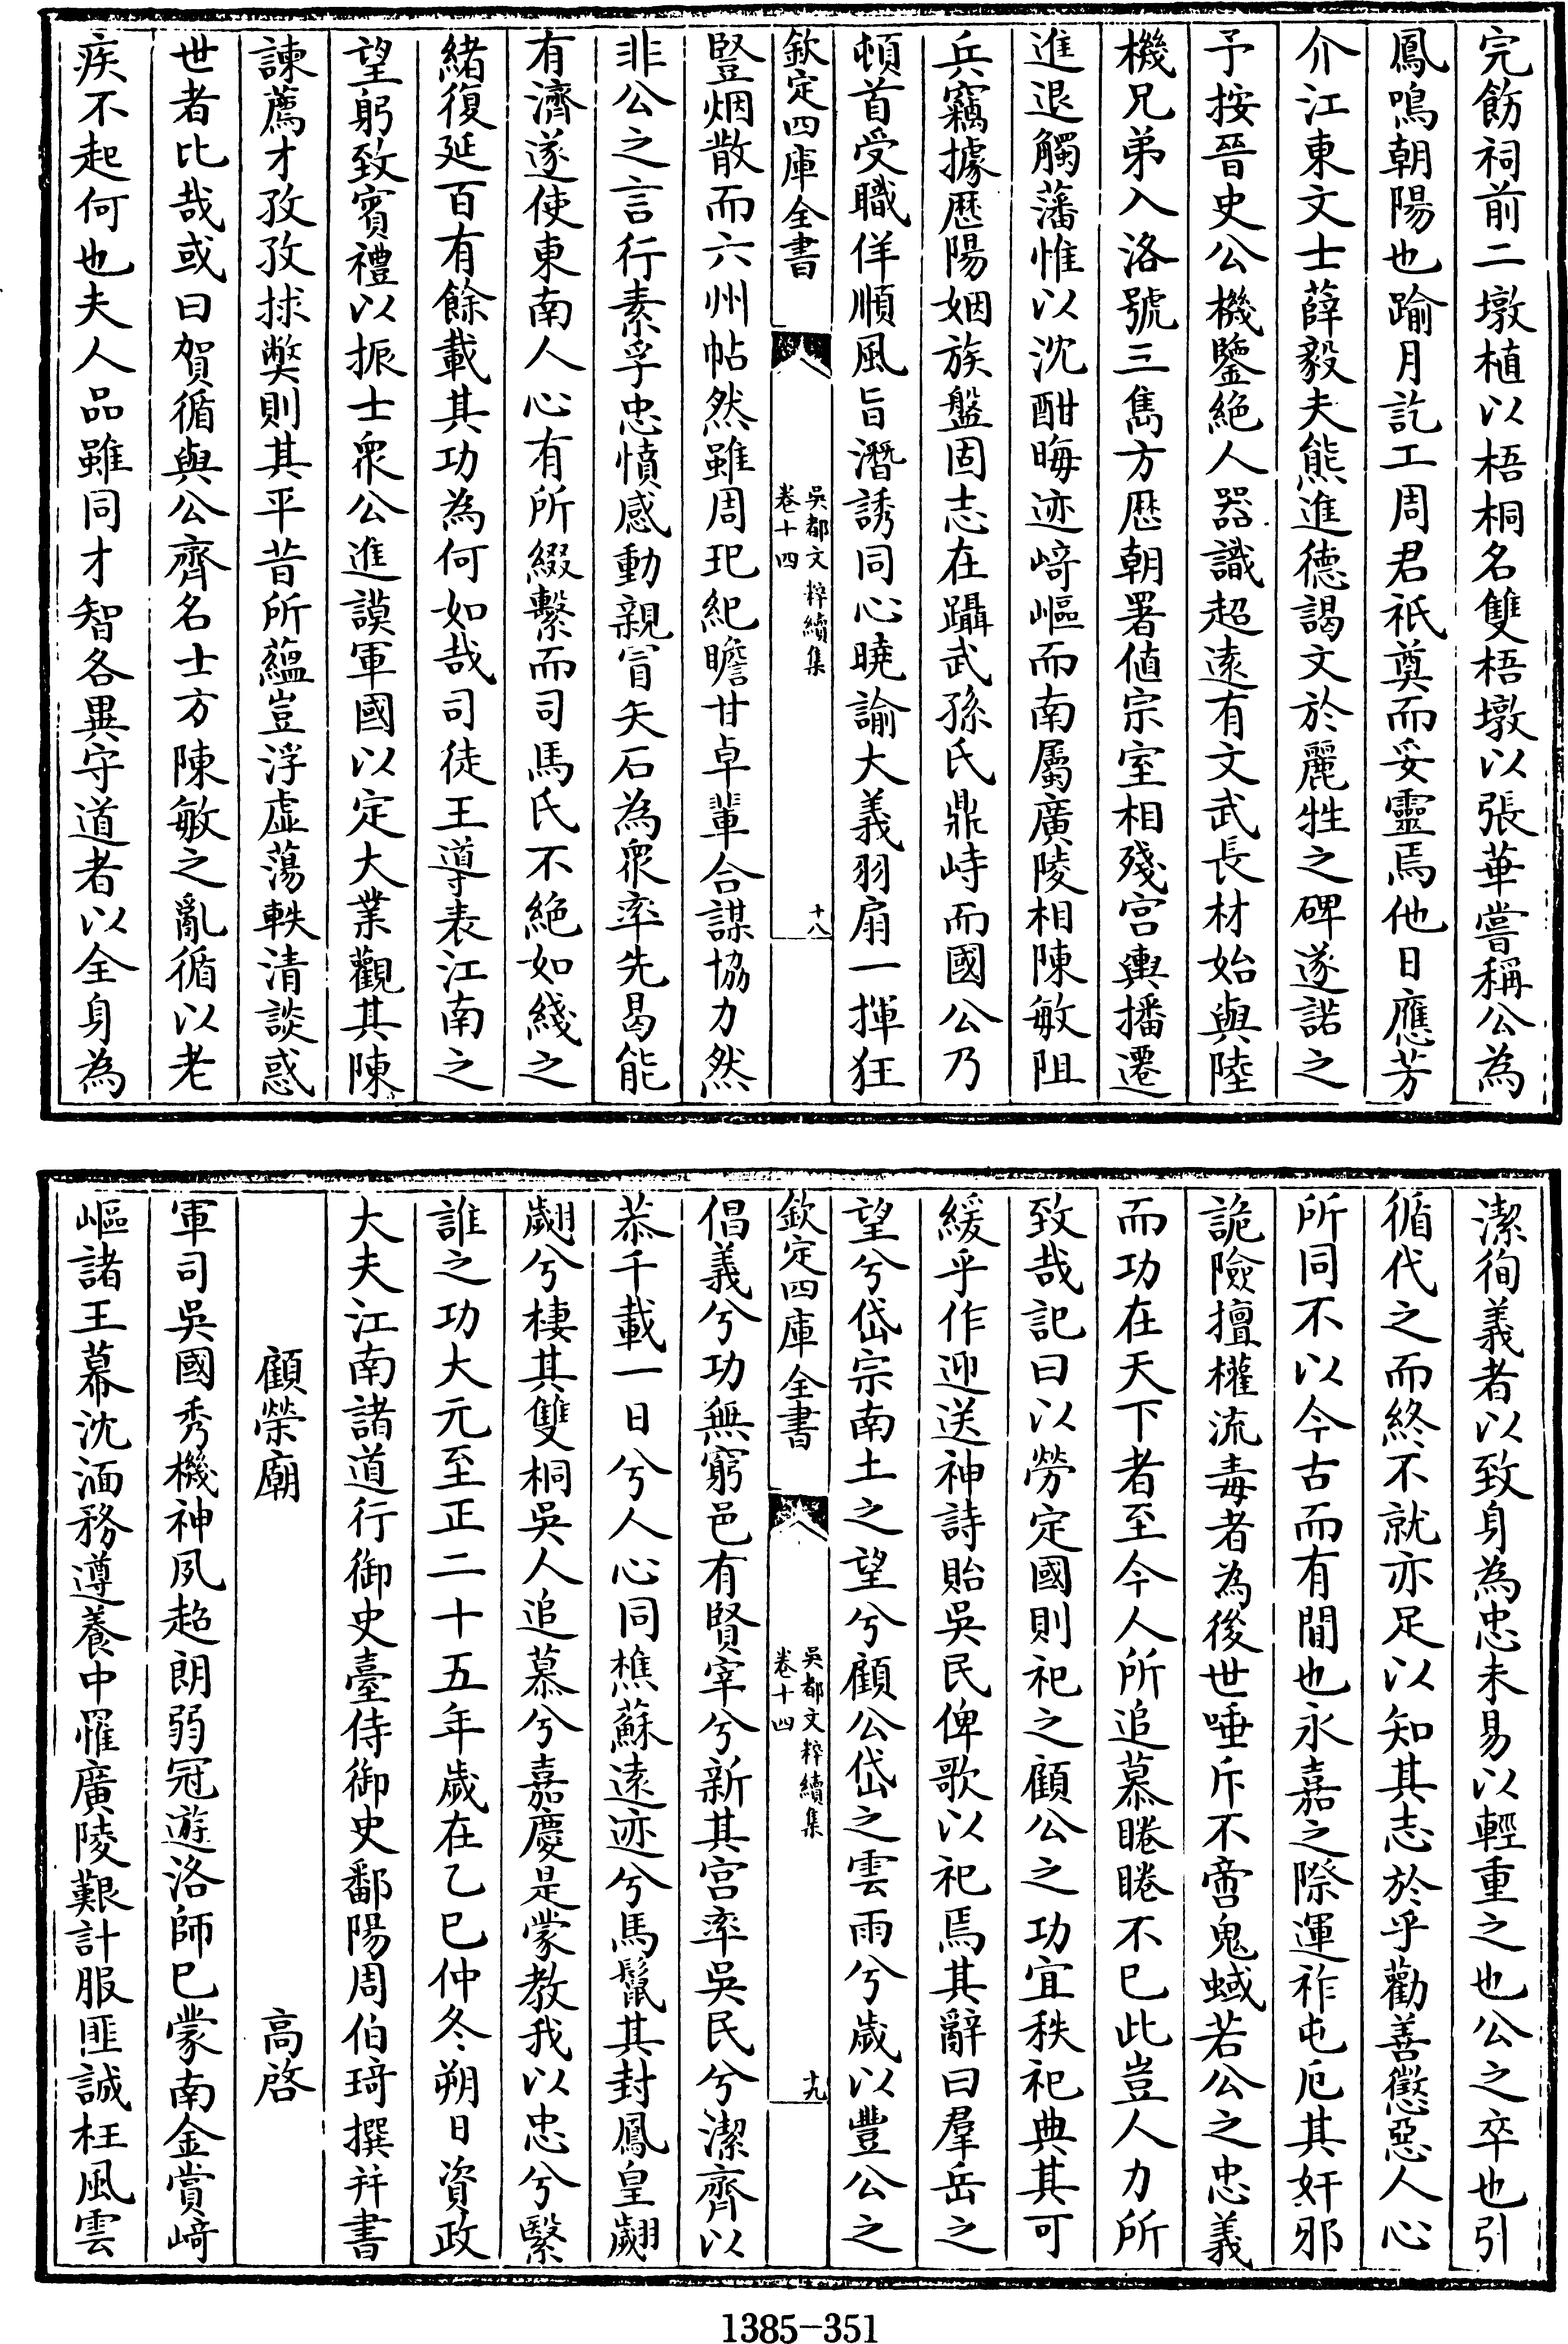 完飭祠前二墩植以梧桐名雙梧墩以張華嘗稱公為
鳳鳴朝陽也踰月訖工周君祇奠而妥靈焉他日應芳
介江東文士薛毅夫熊進德謁文於麗牲之碑遂諾之
予按晉史公機鑒絶人器識超遠有文武長材始與陸
機兄弟入洛號三雋方歴朝署値宗室相殘宫輿播遷
進退觸藩惟以沈酣晦迹崎嶇而南屬廣陵相陳敏阻
兵竊據歴陽姻族盤固志在躡武孫氏鼎峙而國公乃
頓首受職佯順風旨潛誘同心曉諭大義羽扇一揮狂
欽定四庫全書
吳都文粹續集
卷十四
十八
豎烟散而六州帖然雖周玘紀瞻甘卓輩合謀協力然
非公之言行素孚忠憤感動親冒矢石為衆率先曷能
有濟遂使東南人心有所綴繫而司馬氏不絶如綫之
緒復延百有餘載其功為何如哉司徒王導表江南之
望躬致賓禮以振士衆公進謨軍國以定大業觀其陳
諫薦才孜孜捄獘則其平昔所藴豈浮虚蕩軼清談惑
世者比哉或曰賀循與公齊名士方陳敏之亂循以老
疾不起何也夫人品雖同才智各異守道者以全身為
潔徇義者以致身為忠未易以輕重之也公之卒也引
循代之而終不就亦足以知其志於乎勸善懲惡人心
所同不以今古而有間也永嘉之際運祚屯厄其奸邪
詭險擅權流毒者為後世唾斥不啻鬼蜮若公之忠義
而功在天下者至今人所追慕睠睠不已此豈人力所
致哉記曰以勞定國則祀之顧公之功宜秩祀典其可
緩乎作迎送神詩貽吳民俾歌以祀焉其辭曰羣岳之
望兮岱宗南土之望兮顧公岱之雲雨兮歲以豐公之
欽定四庫全書
吳都文粹續集
卷十四
十九
倡義兮功無窮邑有賢宰兮新其宫率吳民兮潔齊以
恭千載一日兮人心同樵蘇逺迹兮馬鬛其封鳳皇翽
翽兮棲其雙桐吳人追慕兮嘉慶是蒙教我以忠兮繄
誰之功大元至正二十五年歲在乙巳仲冬朔日資政
大夫江南諸道行御史臺侍御史鄱陽周伯琦撰并書
顧榮廟　高啓
軍司吳國秀機神夙超朗弱冠遊洛師已蒙南金賞崎
嶇諸王幕沈湎務遵養中罹廣陵艱計服匪誠枉風雲
1385-351